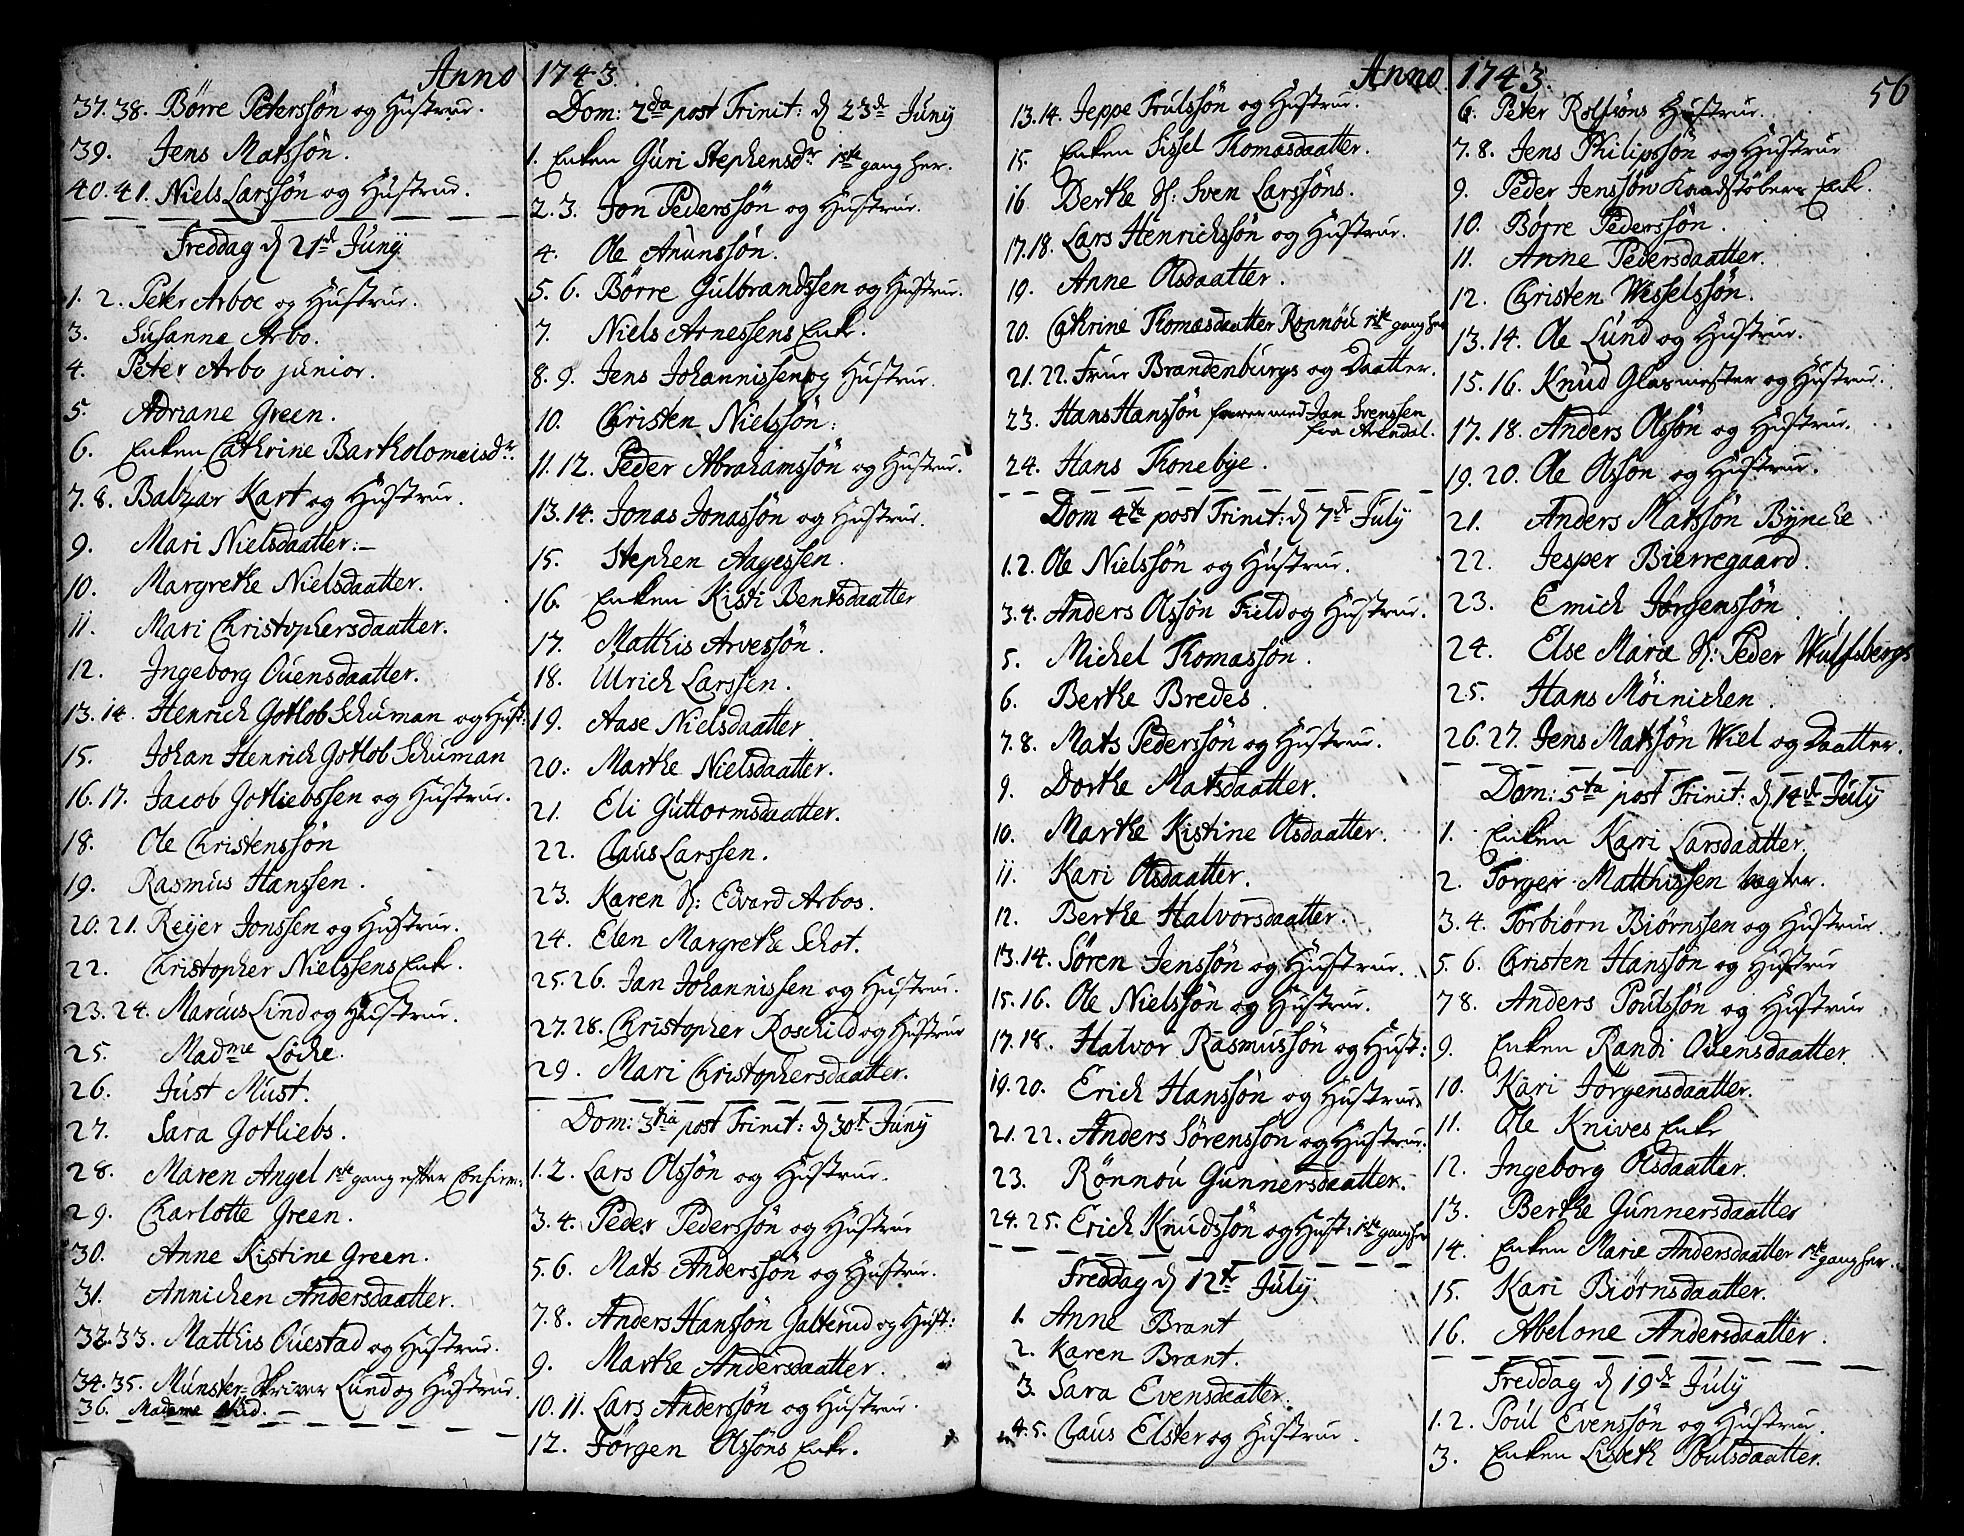 Anno
37. 38. Børre Peterssøn og Hustrue.
39. Jens Matssøn.
40. 41. Niels Larssøn og Hustrue.
Freddag d 21de Juny
1. 2. Peter Arboe og Hustrue.
3. Susanna Arbo.
4. Peter Arbo junior.
5. Adriane Green.
6. Enken Cathrine Bartholomeisdr.
7. 8. Balzar Kart og Hustrue.
9. Mari Nielsdaatter.
10. Margrethe Nielsdaatter.
11. Mari Christophersdaatter.
12. Ingeborg Ouensdaatter.
13. 14. Henrich Gotlob Schuman og Hust:
15. Johan Henrich Gotlob Schuman
16. 17. Jacob Gotliebssen og Hustrue.
18. Ole Christenssøn
19. Rasmus Hanssen.
20. 21. Reyer Jonssen og Hustrue.
22. Christopher Nielssens Enke.
23. 24. Marcus Lind og Hustrue.
25. Madme Løche.
26. Just Must.
27. Sara Gotliebs.
28. Maren Angel 1ste gang efter Confirm:
29. Charlotte Green.
30. Anne Kistine Green.
31. Annichen Andersdaatter.
32. 33. Matthis Questad og Hustrue.
34. 35. Münster-Skriver Lund og Hustrue.
36. Madame
1743.
Dom: 2da post Trinit: d 23de Juny
1. Enken Guri Stephensdr 1ste gang her.
2. 3. Jon Pederssøn og Hustrue.
4. Ole Anunssøn.
5. 6. Børre Gulbrandssen og Hustrue.
7. Niels Arnessens Enke.
8. 9. Jens Johannissen og Hustrue.
10. Christen Nielssøn:
11. 12. Peder Abrahamssøn og Hustrue.
13. 14. Jonas Jonassøn og Hustrue.
15. Stephen Aagessen.
16. Enken Kisti Bentsdaatter
17. Matthis Arvessøn.
18. Ulrich Larssen.
19. Aase Nielsdaatter
20. Marthe Nielsdaatter.
21. Eli Guttormsdaatter.
22. Claus Larssen.
23. Karen H: Edvard Arbos.
24. Elen Margrethe Schot.
25. 26. Jan Johannissen og Hustrue.
27. 28. Christopher Roschild og Hustrue
29. Mari Christophersdaatter.
Dom: 3tia post Trinit: d 30te Juny
1. 2. Lars Olssøn og Hustrue.
3. 4. Peder Pederssøn og Hustrue
5. 6. Mats Anderssøn og Hustrue.
7. 8. Anders Hanssøn Galterud og Hust:
9. Marthe Andersdaatter.
10. 11. Lars Anderssøn og Hustrue.
12. Jørgen Olssøns Enke.
Anno
13. 14. Jeppe Troulssøn og Hustrue.
15. Enken Sissel Thomasdaatter.
16 Berthe H: Sven Larssøns.
17. 18. Lars Henrichssøn og Hustrue.
19. Anne Olsdaatter.
20. Cathrine Thomasdaatter Ronnou 1ste gang her
21. 22. Frue Brandenburgs og Daatter.
23. Hans Hanssøn farer med Jan Svenssen
fra Arendal.
24. Hans Thonebye.
Dom 4te post Trinit: d 7de July
1. 2. Ole Nielssøn og Hustrue.
3. 4. Anders Olssøn Field og Hustrue.
5. Michel Thomassøn.
6. Berthe Bredes.
7. 8. Mats Pederssøn og Hustrue.
9. Dorthe Matsdaatter.
10. Marthe Kistine Olsdaatter.
11. Kari Olsdaatter.
12. Berthe Halvorsdaatter
13. 14. Søren Jenssøn og Hustrue.
15. 16. Ole Nielssøn og Hustrue.
17. 18. Halvor Rasmussøn og Hust:
19. 20. Erich Hanssøn og Hustrue.
21. 22. Anders Sørenssøn og Hustrue.
23. Rønnou Gunnersdaatter.
24. 25. Erich Knudssøn og Hust: 1ste gang her
Freddag d 12te July
1. Anne Brant
2. Karen Brant.
3. Sara Evensdaatter.
4. 5. Claus Elster og Hustrue.
1743.
56
6. Peter Rolfsøns Hustrue.
7. 8. Jens Philipssøn og Hustrue
9. Peder Jenssøn Kaadstøbers Enke.
10. Børre Pederssøn.
11. Anne Pedersdaatter.
12. Christen Wesselssøn.
13. 14. Ole Lund og Hustrue.
15. 16. Knud Glasmester og Hustrue.
17. 18. Anders Olssøn og Hustrue.
19. 20. Ole Olssøn og Hustrue.
21. Anders Matssøn Bynche
22. Jesper Bierregaard.
23. Emich Jørgenssøn
24. Else Maria H: Peder Wulfsbergs
25. Hans Møinichen.
26. 27. Jens Matssøn Wiel og Daatter.
Dom: 5ta post Trinit: d 14de July
1. Enken Kari Larsdaatter.
2. Torger Matthissen Vagter.
3. 4. Torbiørn Biørnssen og Hustrue.
5. 6. Christen Hanssøn og Hustrue
7 8. Anders Poulssøn og Hustrue
9. Enken Randi Ouensdaatter.
10. Kari Jørgensdaatter.
11. Ole Knives Enke
12. Ingeborg Olsdaatter.
13. Berthe Gunnersdaatter
14. Enken Marie Andersdaatter 1ste gang her.
15. Kari Biørnsdaatter.
16. Abelone Andersdaatter.
Freddag d 19de July
1. 2. Poul Evenssøn og Hustrue.
3. Enken Lisbeth Poulsdaatter.